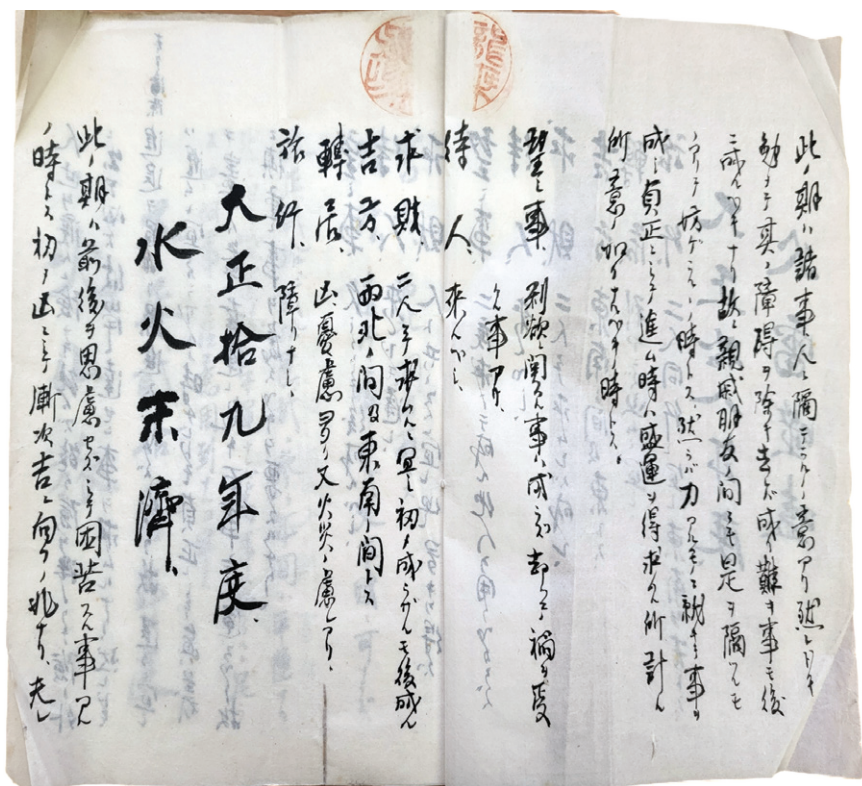 此ノ期ハ諸事人ニ隔テラルヽノ意アリ然レドモ
勉メテ其ノ障碍ヲ除キ去レバ成リ難キ事モ後
ニ成ルベキナリ故ニ親戚朋友ノ間ニモ是ヲ隔ルモ
ノアリテ妨ゲラルヽノ時トス然ラバ力アルモノニ就キテ事ヲ
成シ貞正ニシテ進ム時ハ盛運ヲ得求ムル所計ル
所意ノ如クナルベキノ時トス。
望ミ事、利欲ニ関スル事ハ成ラズ却テ禍ヲ受
クル事アリ、
待人、来ルベシ、
求財、二人ニテ求ムルニ宜シ初メ成ラザルモ後成ル
吉方、西北ノ間及東南ノ間トス
轉居、凶憂慮アリ又火災ノ慮アリ、
旅行、障リナシ、
大正拾九年度、
水火未濟、
此ノ期ハ前後ヲ思慮セズシテ困苦スル事アル
ノ時トス初メ凶ニシテ漸次吉ニ向フノ兆ナリ、夫レ